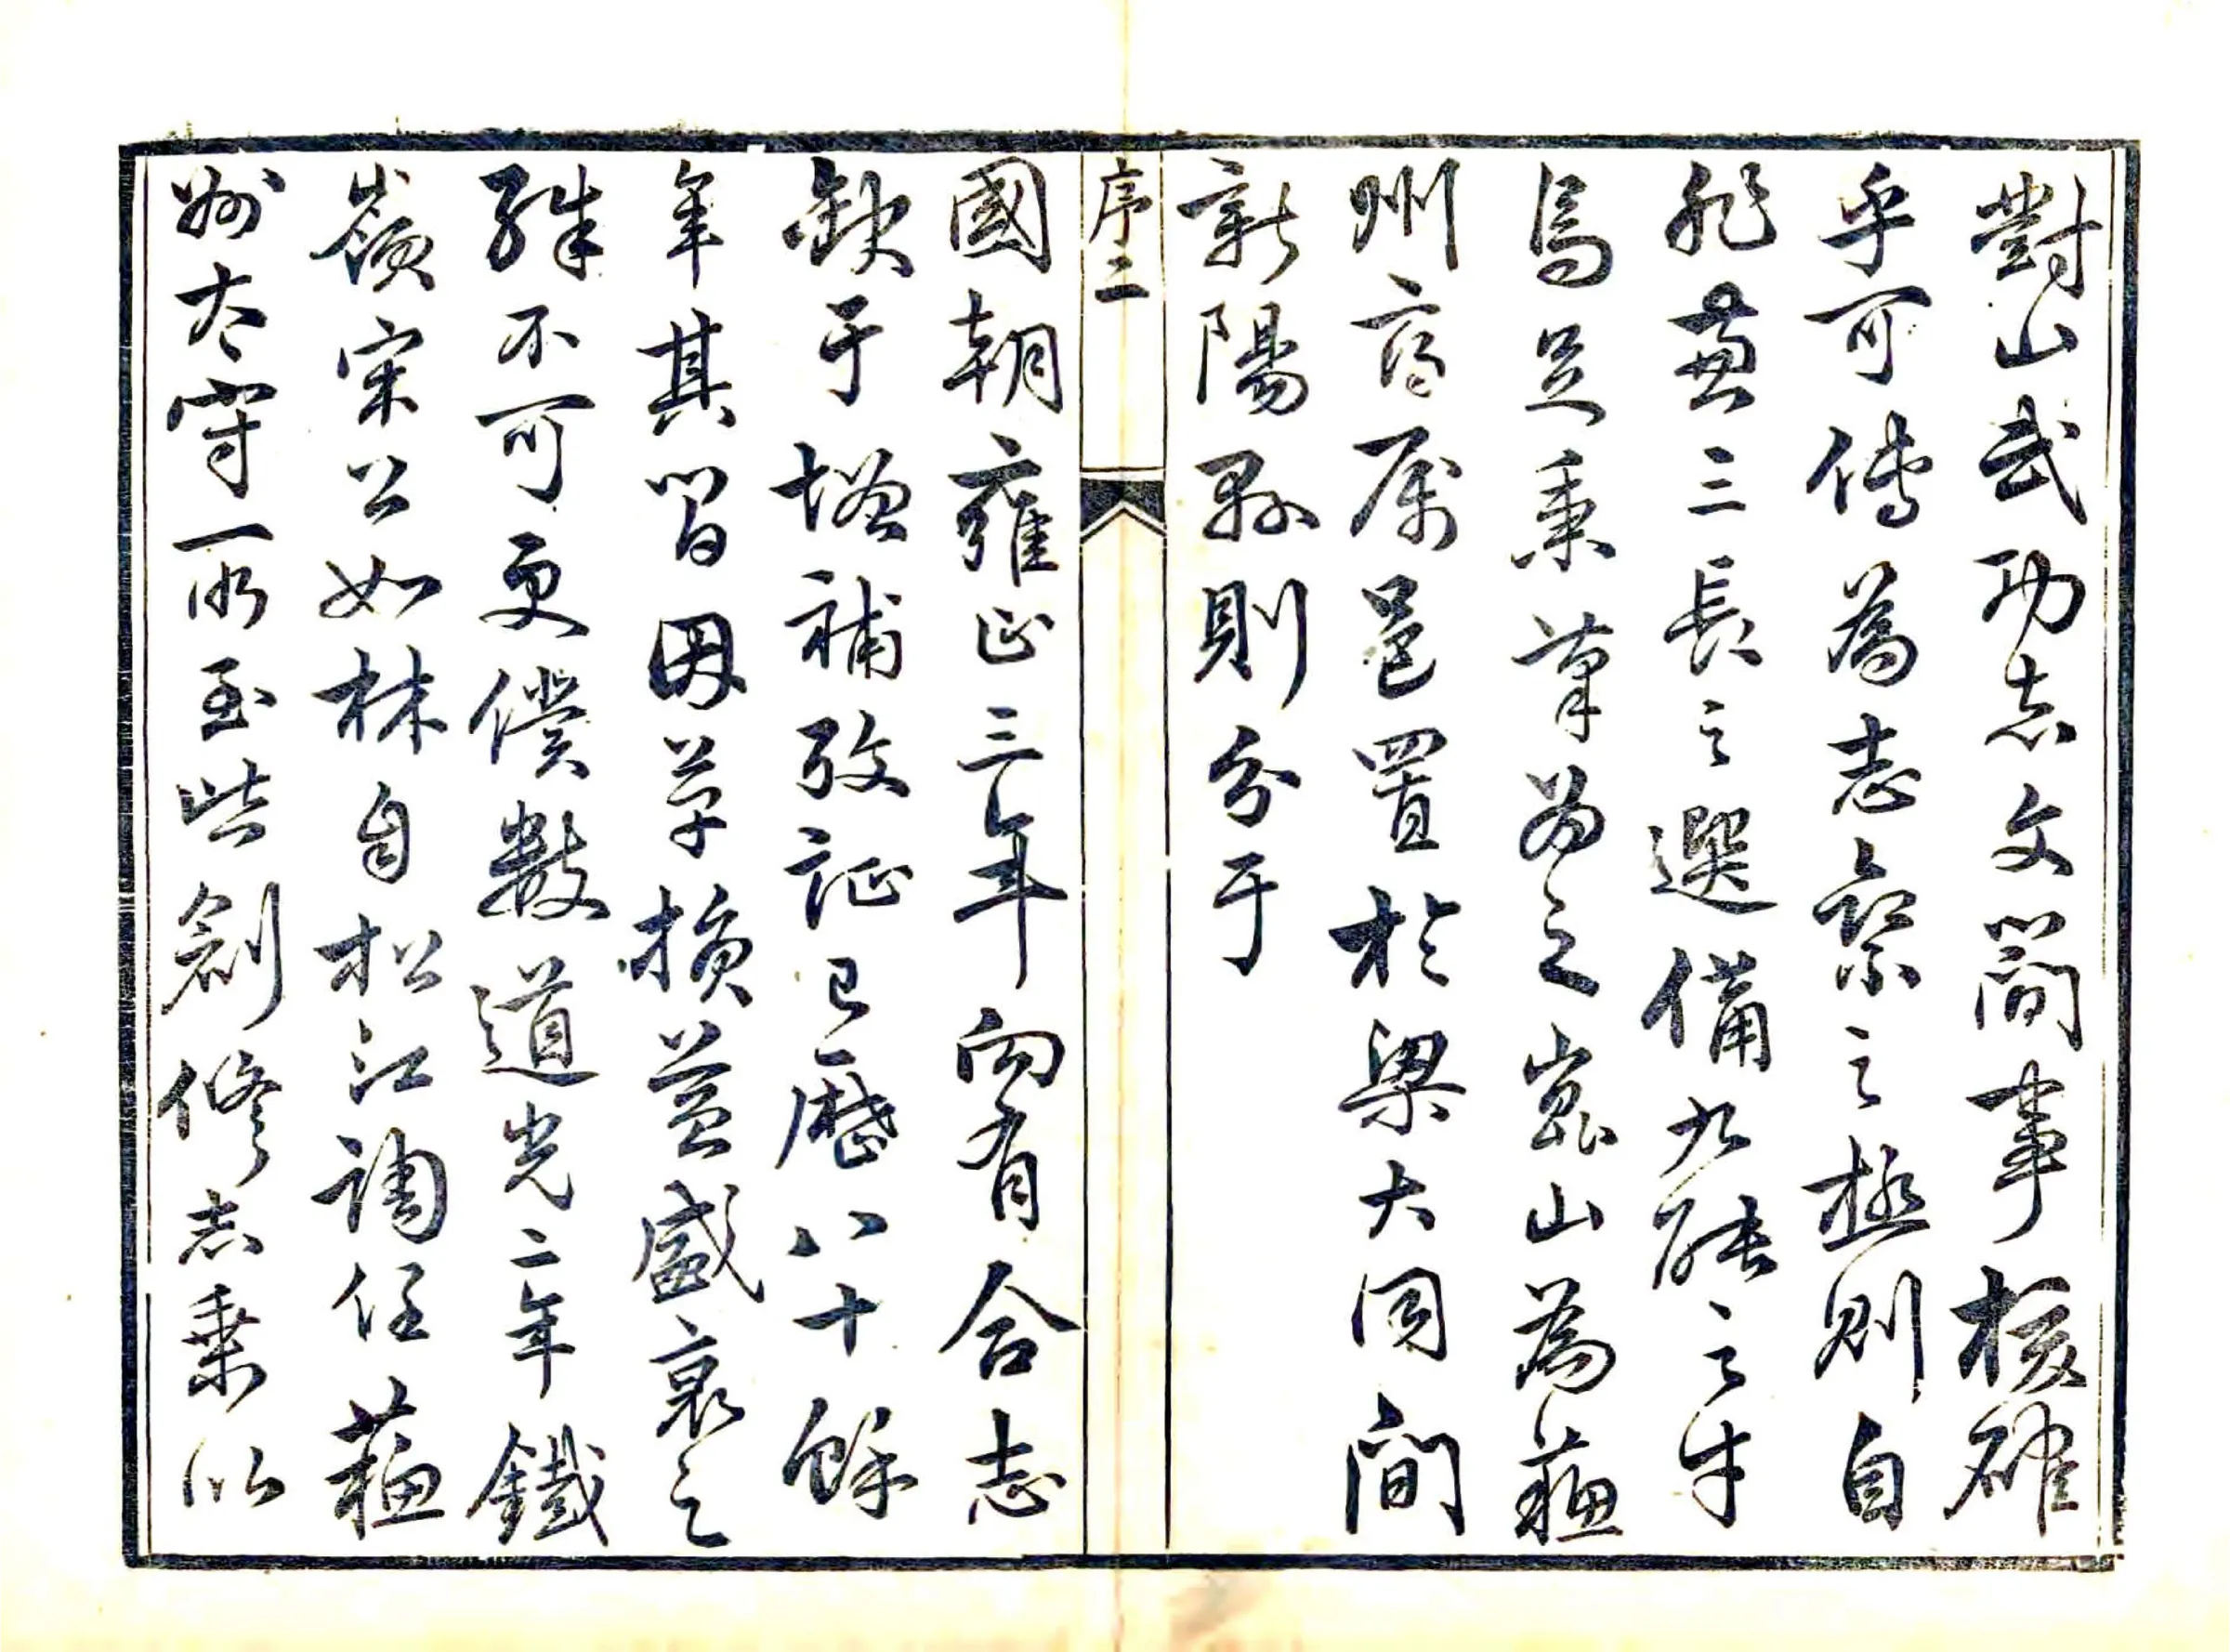 對山武功志文簡事核確
乎可傳為志乘之極則自
非兼三長之選備九能之才
焉足秉筆為之崑山為蘇
州高屬邑置於梁大同間
新陽縣則分于
序二
國朝雍正三年向有合志
缺于增補攷証已歷八十餘
年其間因革損益盛衰之
殊不可更僕數道光二年鐵
嶺宋公如林自松江調任蘇
州太守一所至皆創修志乘以